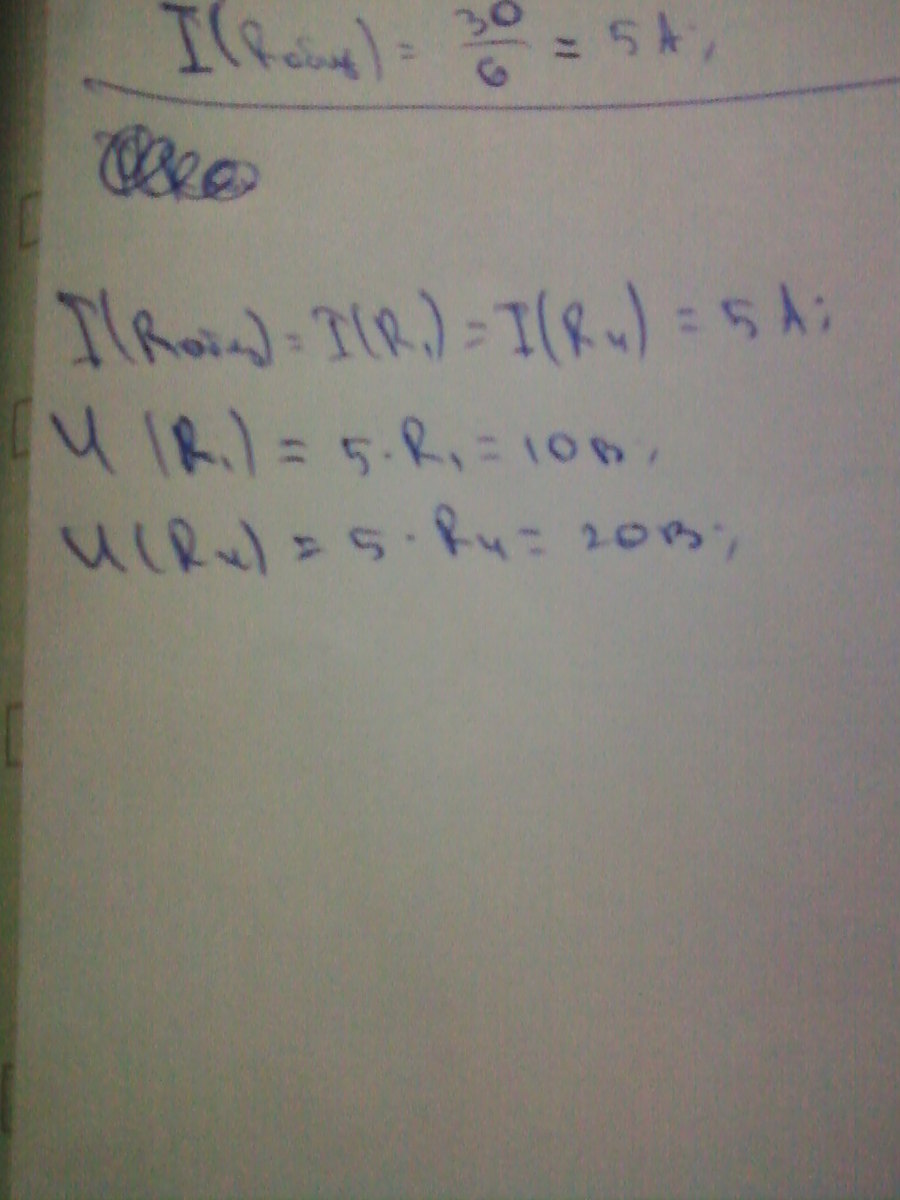 I(Rобщ) = 30/6 = 5 А;
I(Rобщ) = I(R₁) = I(R₄) = 5 А;
U (R₁) = 5 · R₁ = 10 В;
U(R₄) = 5 · R₄ = 20 В;